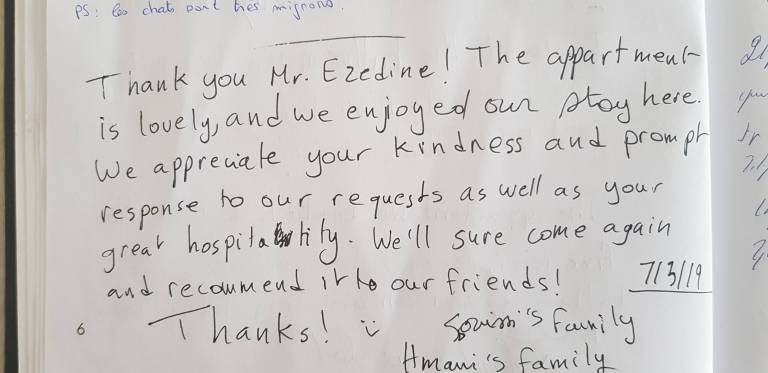 PS: les chats sont très mignons.
Thank you Mr. Ezedine! The appartment
is lovely, and we enjoyed our stay here.
We appreciate your kindness and prompt
response to our requests as well as your
great hospitality. We'll sure come again
and recommend it to our friends!
7/3/19
6 Thanks! :)
family
Hmani's family